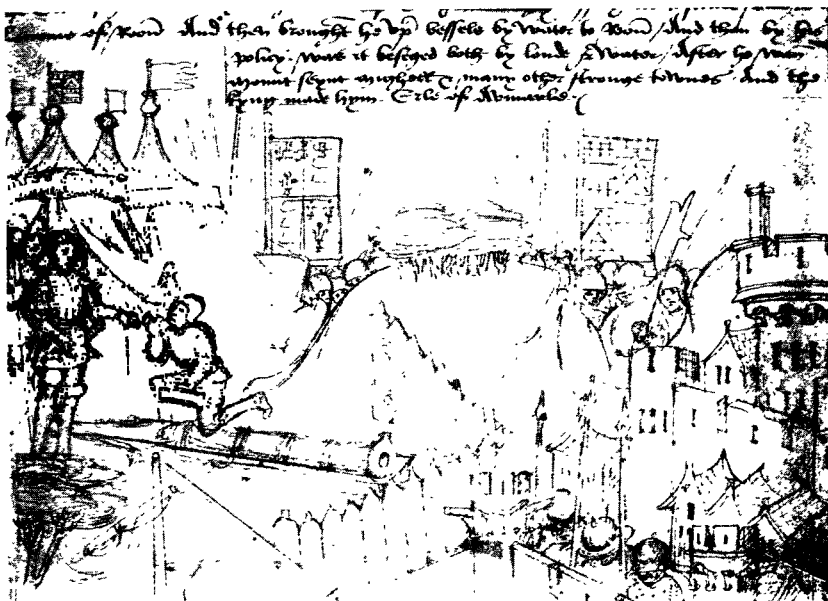 of Roon And then brought he vp vessels by water to Roon / And then by his
policy was it beseged both by londe & water / After he wan
mount seynt mighell & many other stronge townes And the
kyng made hym Erle of Aumarle